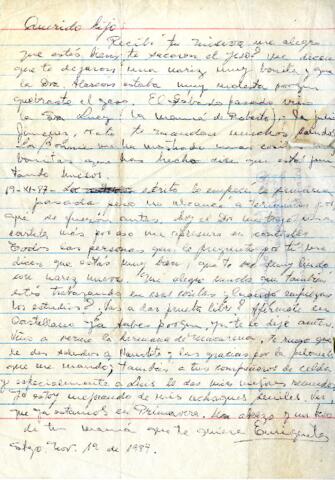 Querido Hijo:
Recibí tu misiva me alegro
que estés bien, te sacaron el yeso? me dicen
que te dejaron una nariz muy bonita y que
la Dra Alarcon estaba muy molesta porque
quebraste el yeso. El Sábado pasado vino
la Sra Lucy (la mamá de Roberto), la
te mandan muchos
La Bonnie me ha mandado unas cosas
bonitas que has hecho dice que está
tando
19-XI-97- Lo escrito lo empecé la semana
pasada pero no alcancé a terminarlo por
qué se fueron antes. Hoy el Dr me trajo otra
cartita más por eso me apresuro en contestarte
Todas las personas que le pregunto por ti me
dicen que estás muy bien, que te ves muy lindo
con nariz nueva. Me alegro mucho que también
estés trabajando en esas cositas y cuando empiezas
los estudios? Vas a dar prueba libre? Afírmate en
Castellano ya sabes porque, yo te lo dije antes.
Vino a verme la hermana de Macarena, te ruego que
le des saludos a y las gracias por la
que me mandó; también a tus compañeros de celda
y especialmente a les das mis mejores recuerdos
Yo estoy mejorando de mis achaques seniles. Ves
que ya estamos en Primavera. Un abrazo y un beso
de tu mamá que te quiere Enriqueta
Stgo. Nov. 19 de 1997.